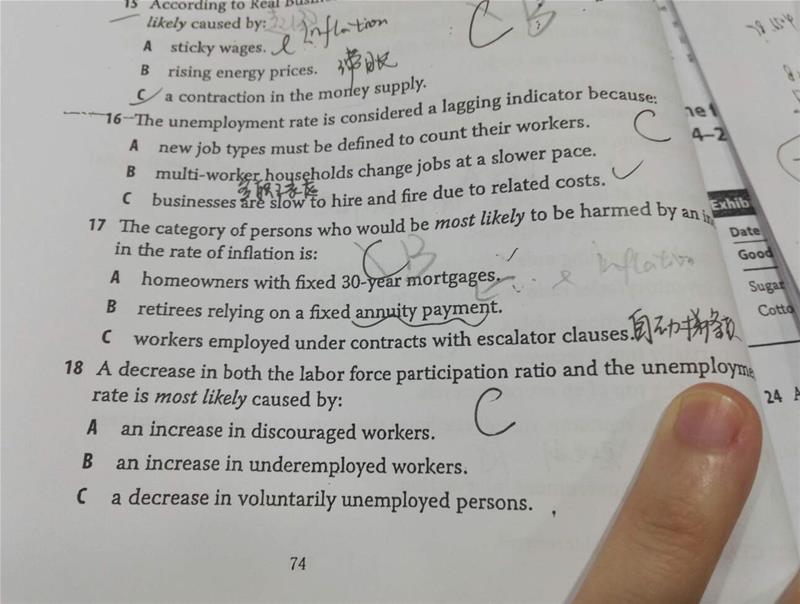 15 According to Real Busin
likely caused by: Inflation
A sticky wages.
B rising energy prices.
C a contraction in the money supply.
16 The unemployment rate is considered a lagging indicator because:
A new job types must be defined to count their workers.
B multi-worker households change jobs at a slower pace.
C businesses are slow to hire and fire due to related costs.
C
17 The category of persons who would be most likely to be harmed by an in
in the rate of inflation is:
C B
A homeowners with fixed 30-year mortgages.
inflation
B retirees relying on a fixed annuity payment.
C workers employed under contracts with escalator clauses.
18 A decrease in both the labor force participation ratio and the unemployme
rate is most likely caused by:
C
A an increase in discouraged workers.
B an increase in underemployed workers.
C a decrease in voluntarily unemployed persons.
74
C B
4–2
Exhib
Date
Good
Sugar
Cotto
24 A